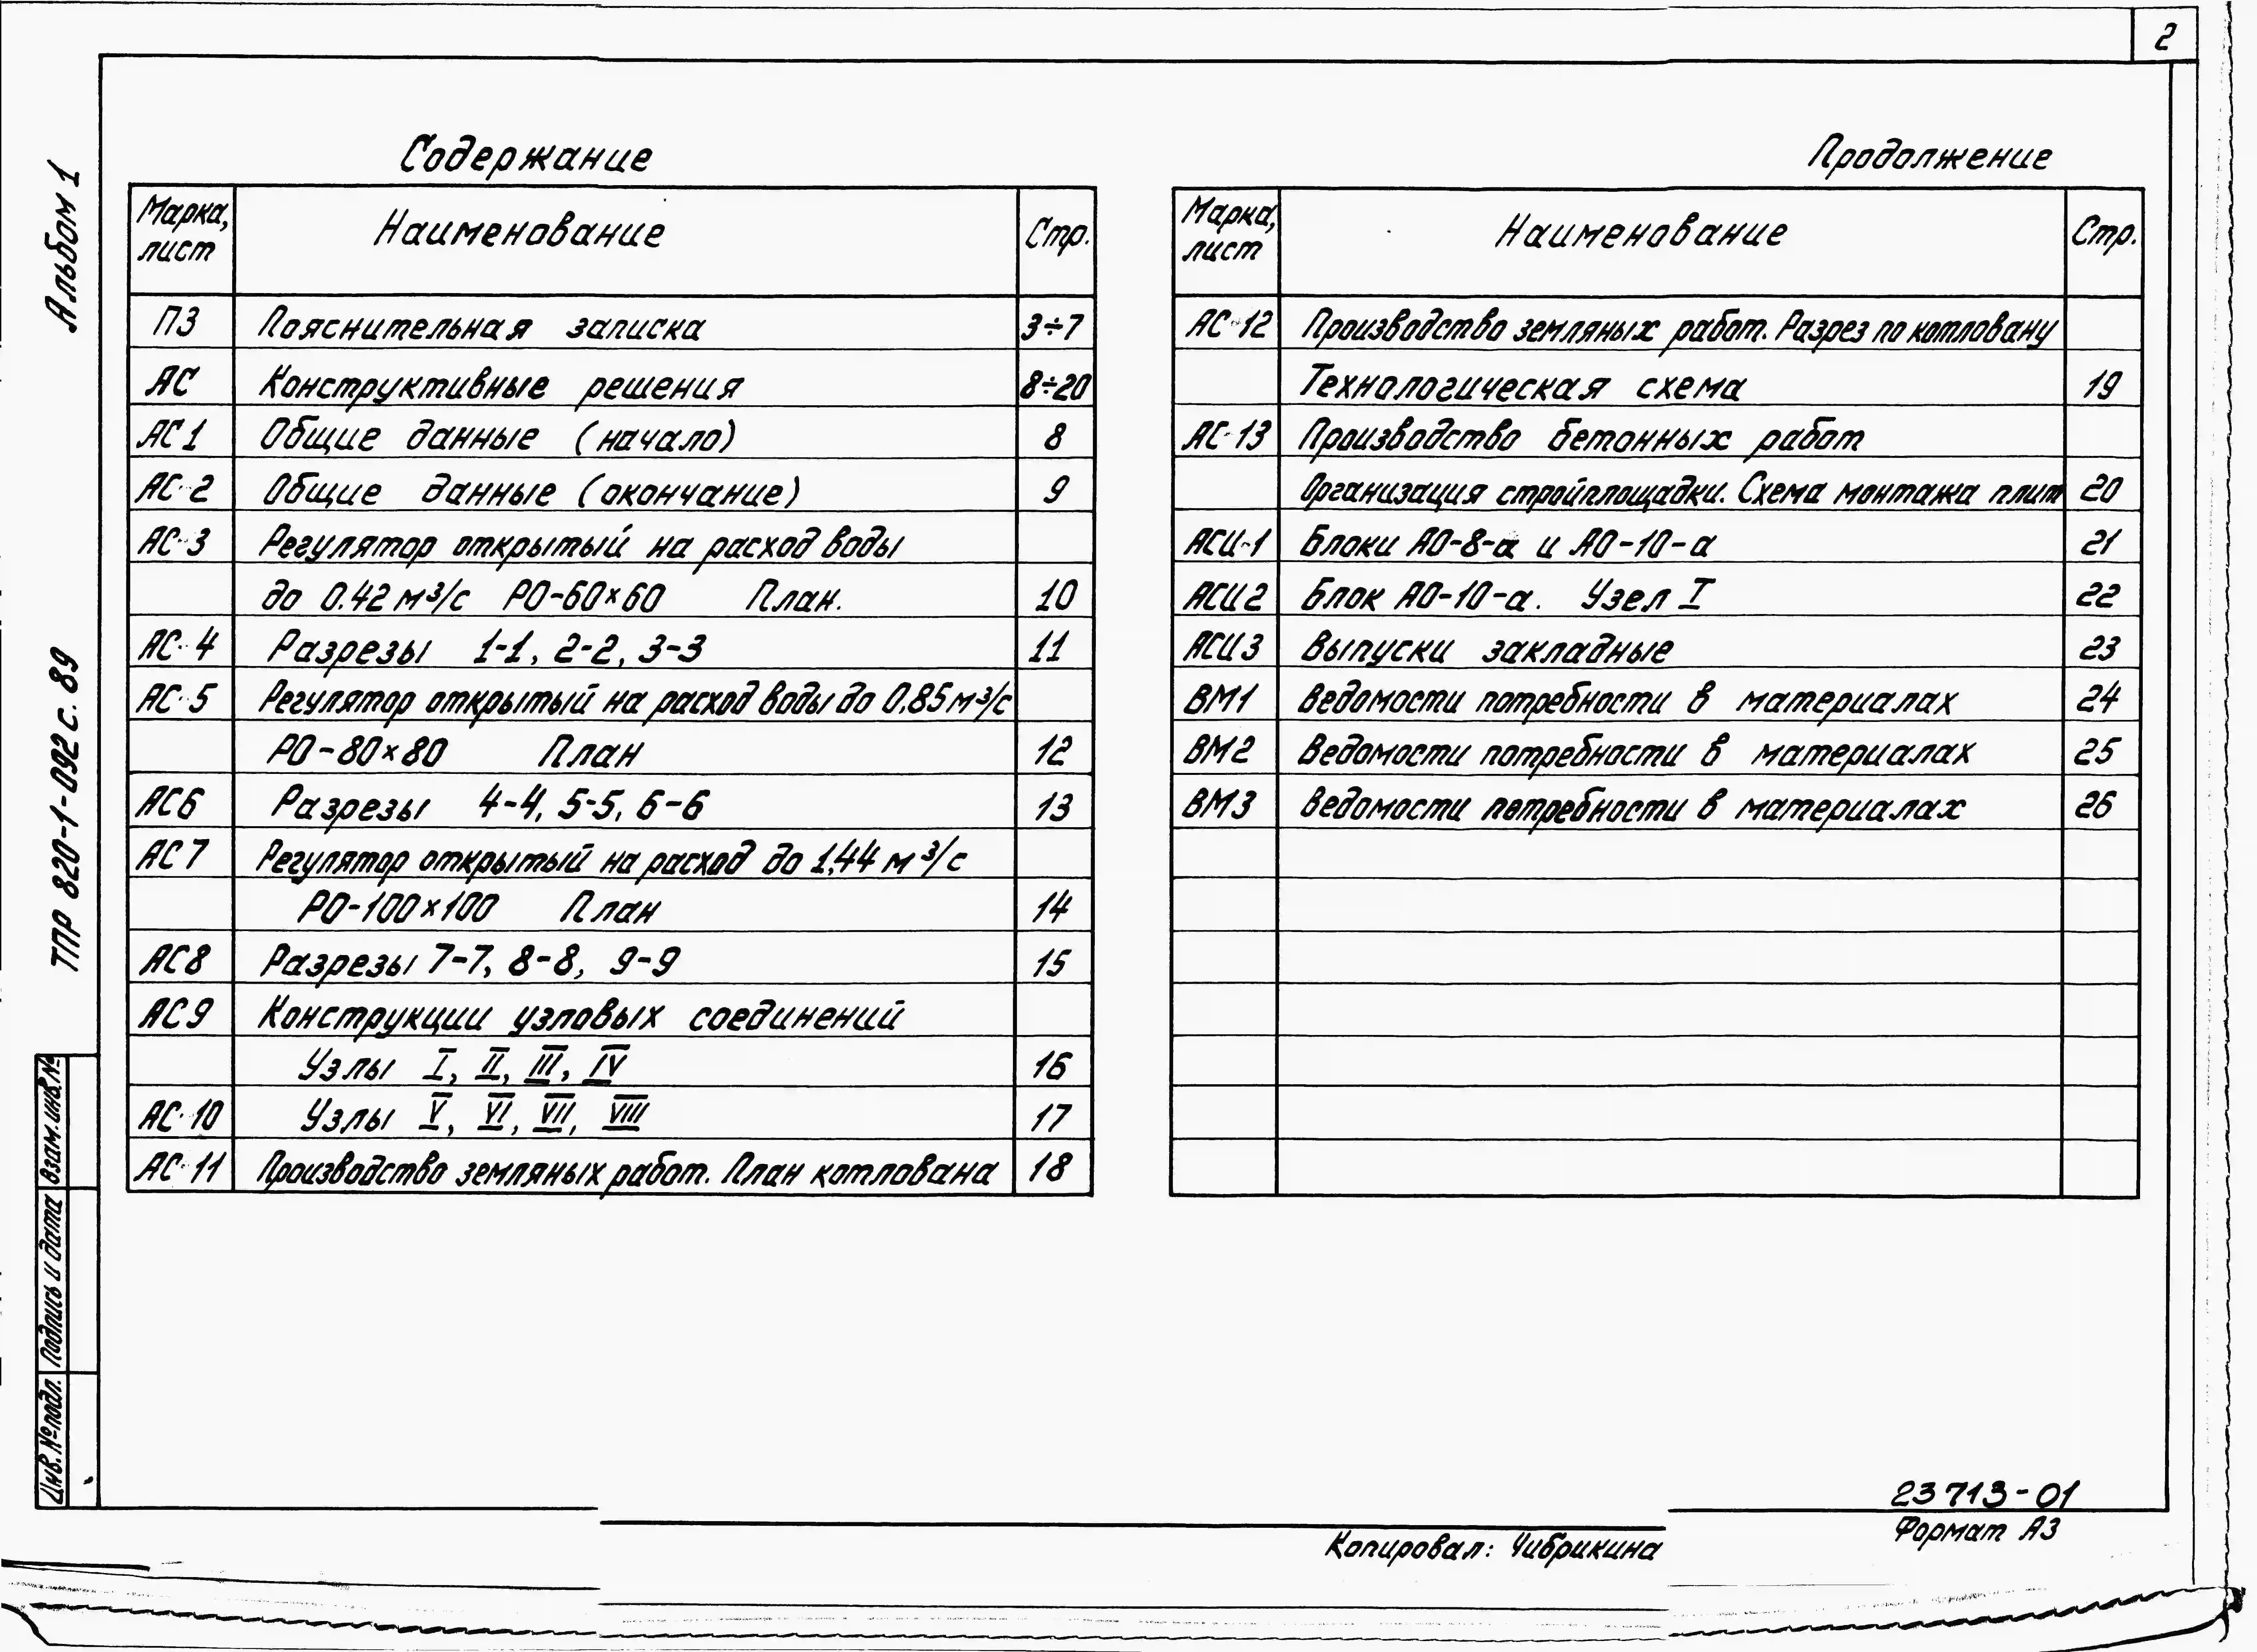 2
Альбом 1
ТПР 820-1-092 с. 89
Содержание
Марка, лист Наименование Стр.
ПЗ Пояснительная записка 3÷7
АС Конструктивные решения 8÷20
АС1 Общие данные (начало) 8
АС-2 Общие данные (окончание) 9
АС-3 Регулятор открытый на расход воды
до 0.42 м³/с РО-60×60 План. 10
АС-4 Разрезы 1-1, 2-2, 3-3 11
АС-5 Регулятор открытый на расход воды до 0,85 м³/с
РО-80×80 План 12
АС6 Разрезы 4-4, 5-5, 6-6 13
АС7 Регулятор открытый на расход до 1,44 м³/с
РО-100×100 План 14
АС8 Разрезы 7-7, 8-8, 9-9 15
АС9 Конструкции узловых соединений
Узлы I, II, III, IV 16
АС-10 Узлы V, VI, VII, VIII 17
АС-11 Производство земляных работ. План котлована 18
Продолжение
Марка, лист Наименование Стр.
АС-12 Производство земляных работ. Разрез по котловану
Технологическая схема 19
АС-13 Производство бетонных работ
Организация стройплощадки. Схема монтажа плит 20
АСИ-1 Блоки АО-8-а и АО-10-а 21
АСИ2 Блок АО-10-а. Узел I 22
АСИ3 Выпуски закладные 23
ВМ1 Ведомости потребности в материалах 24
ВМ2 Ведомости потребности в материалах 25
ВМ3 Ведомости потребности в материалах 26
Взам.инв.№
Подпись и дата
Инв.№подл.
23713-01
Копировал: Чибрикина
Формат А3